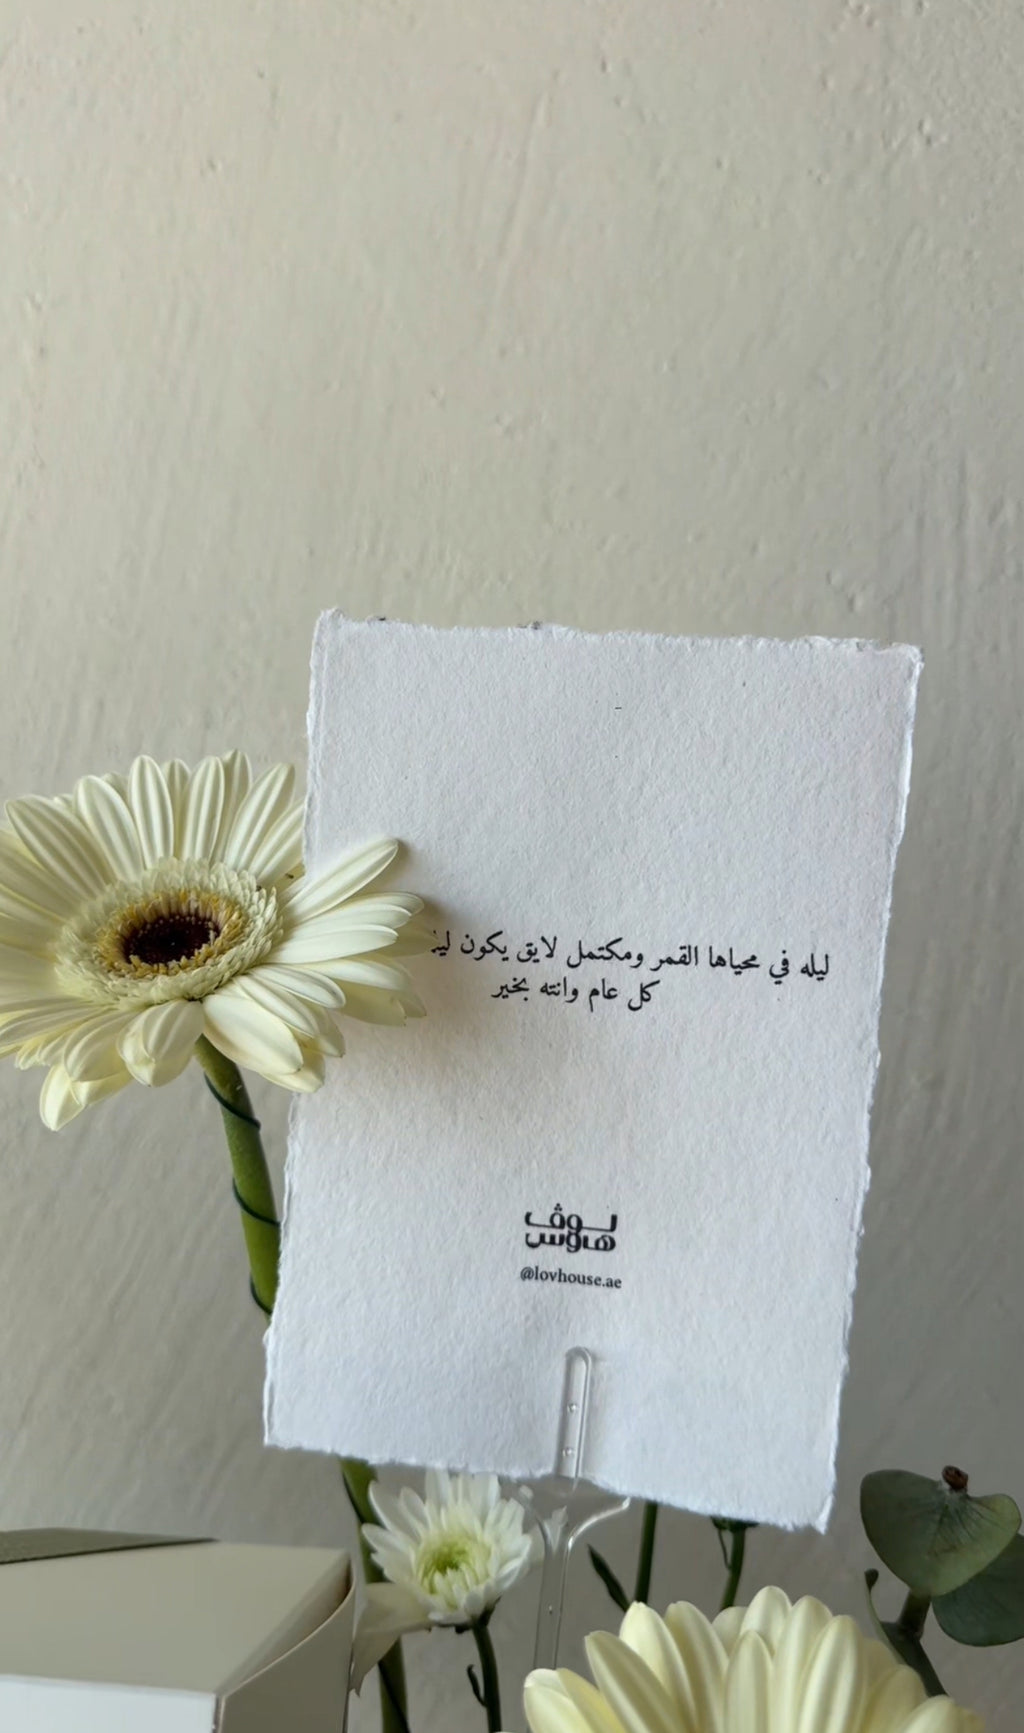 ليله في محياها القمر ومكتمل لايق يكون
كل عام وانته بخير
لوڤ
هاوس
@lovhouse.ae